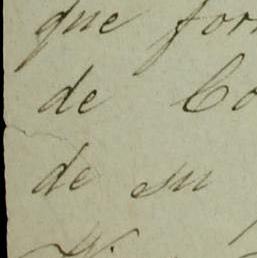 que for
de Co
de su